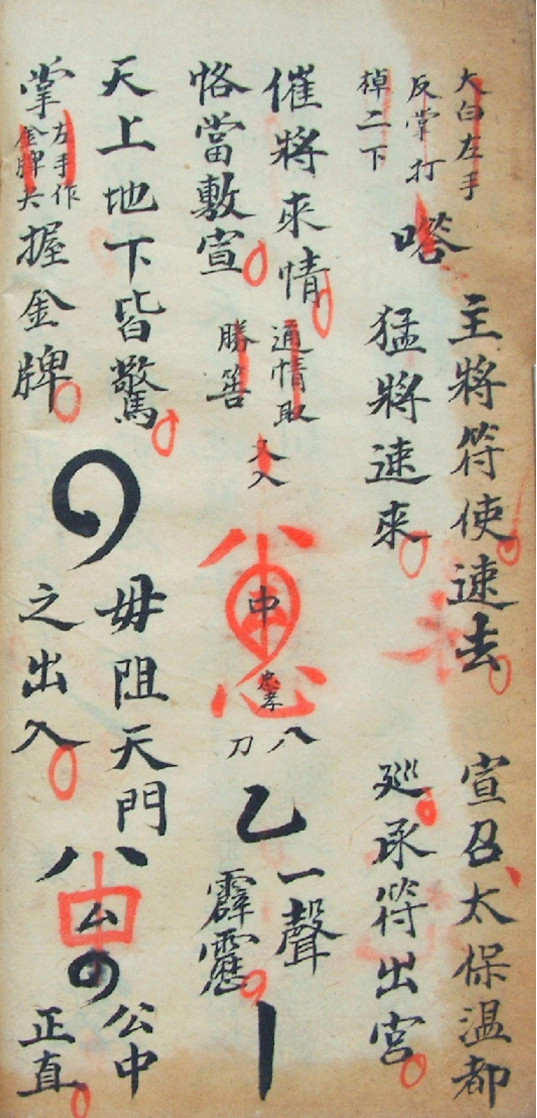 大白左手
反掌打
棹二下
嗒
主將符使速去
猛將速來
宣召太保温都
廵承符出宮
催將來情
恪當敷宣
通情取
勝筶
入入
中
忠孝
八刀
乙
一聲
霹靂
天上地下皆驚
掌
左手作
金牌大
握金牌
毋阻天門
之出入
八
中
厶
公中
正直